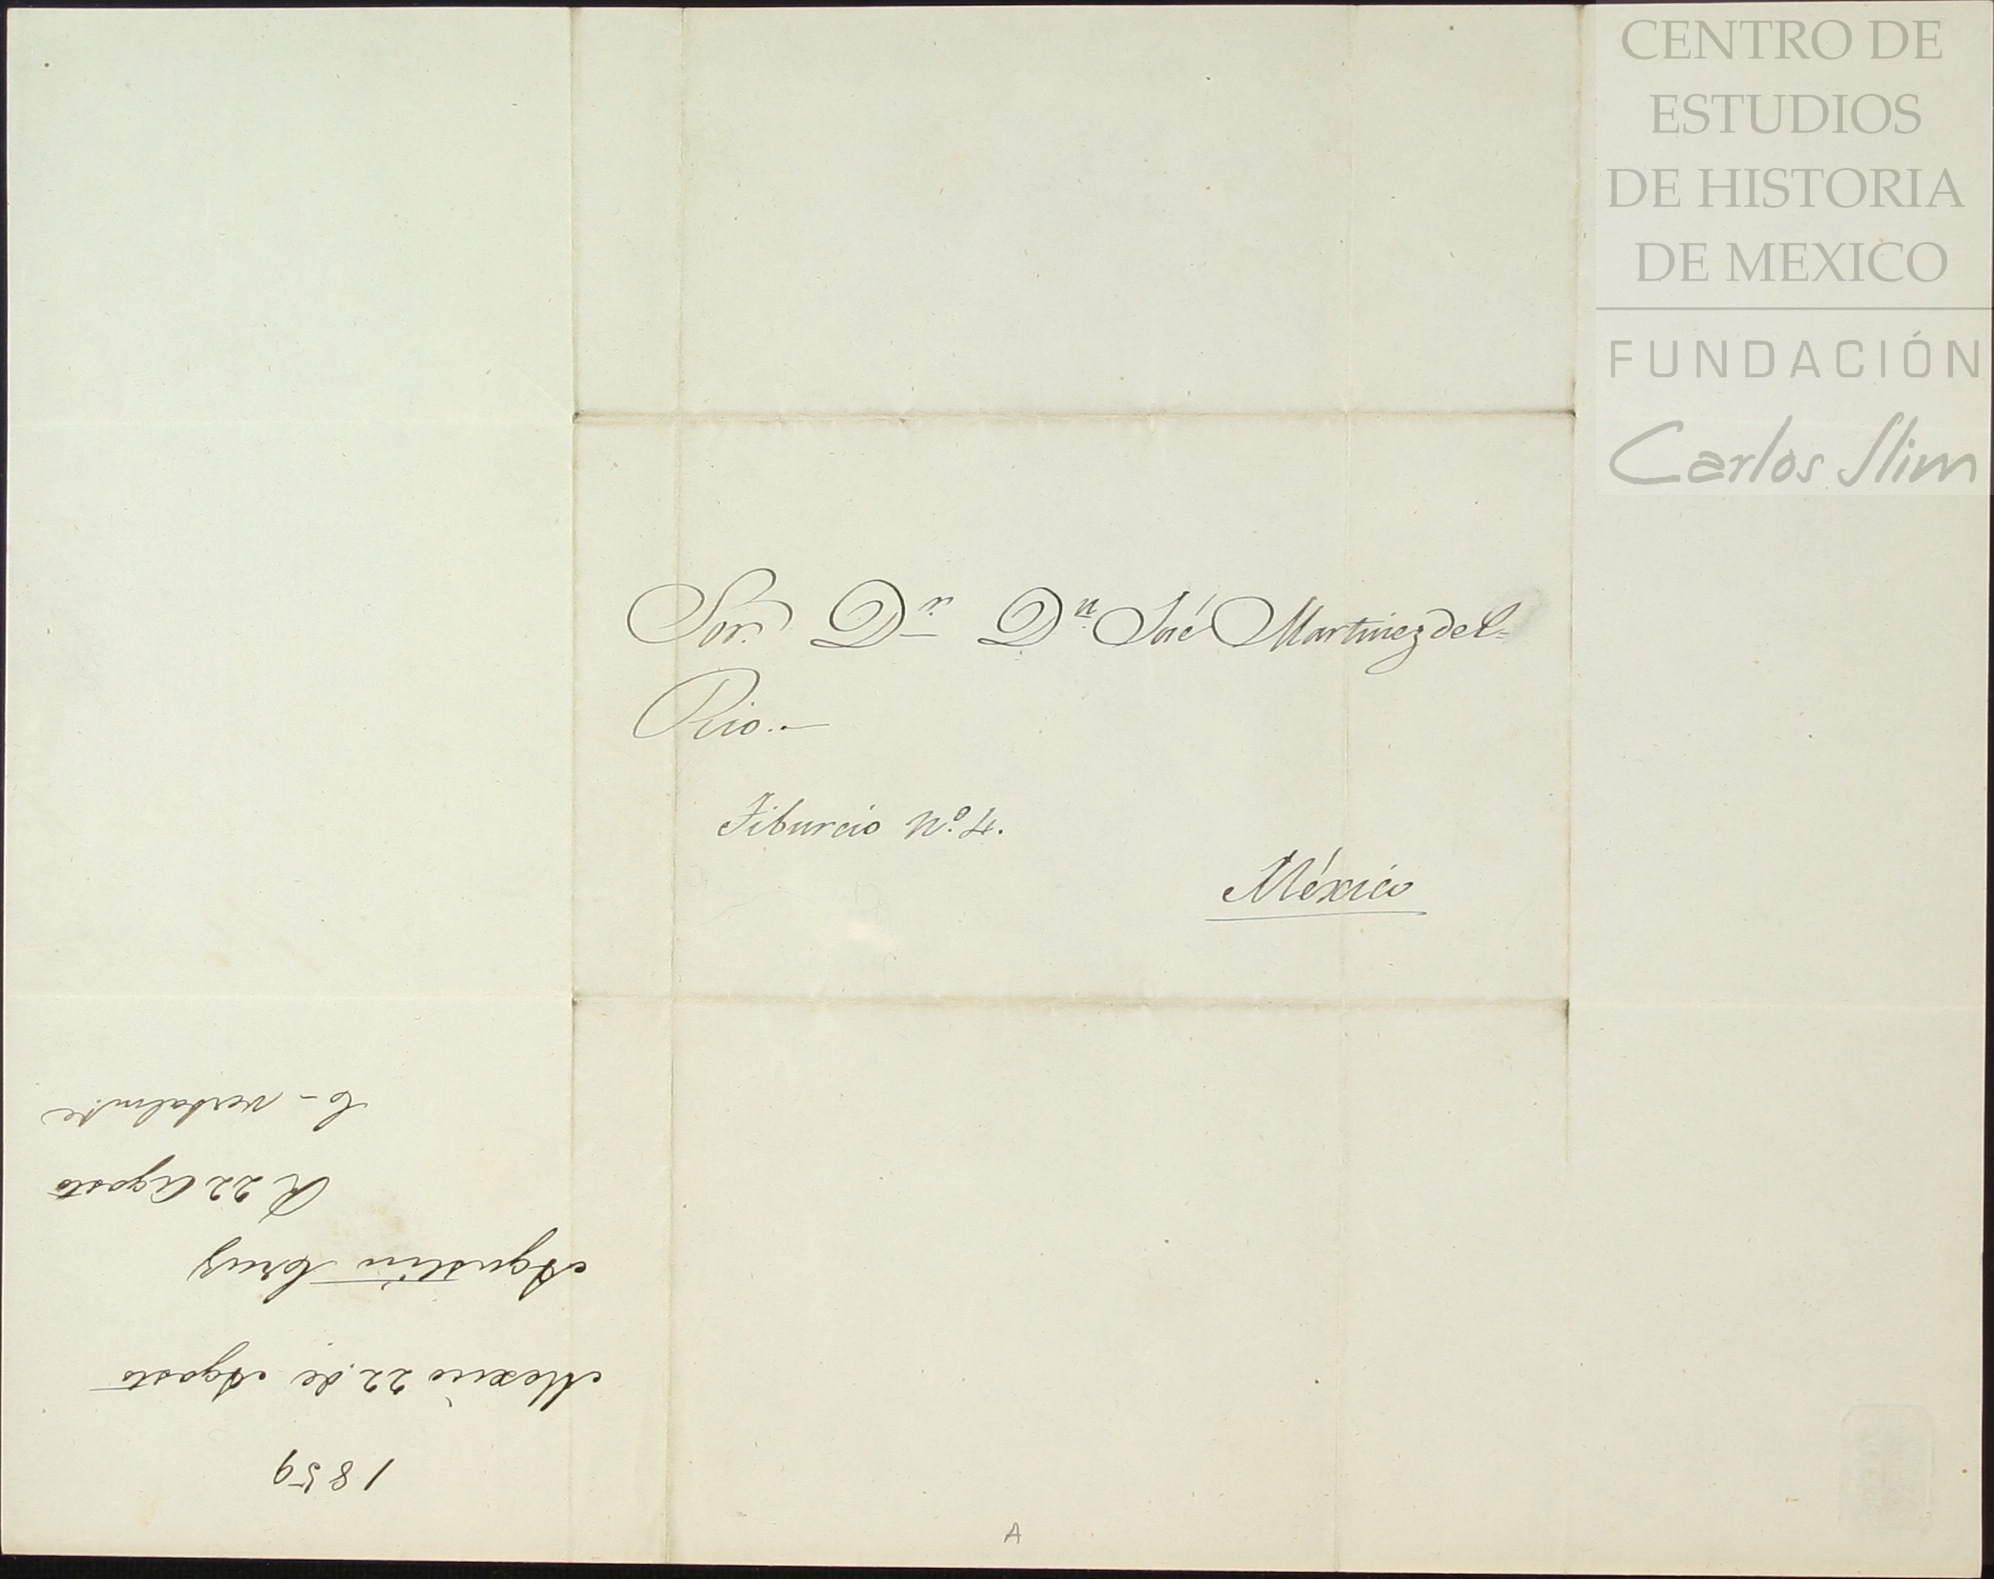 CENTRO DE
ESTUDIOS
DE HISTORIA
DE MEXICO
FUNDACIÓN
Carlos Slim
Sor. Dr. Dn. José Martinez del=
Rio.—
Tiburcio No. 4.
México
1859
Mexico 22. de Agosto
Agustin Cruz
R 22 Agosto
C— verbalmte
A